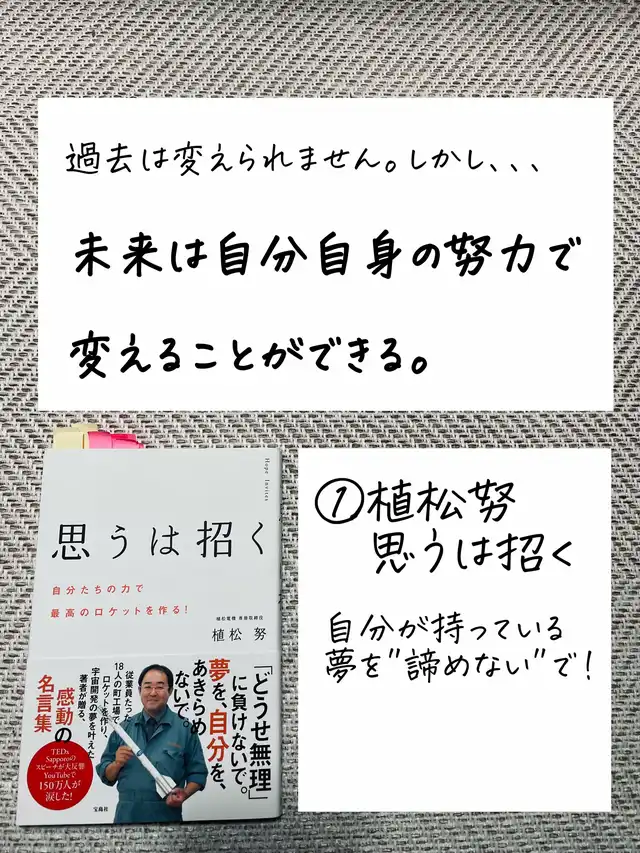 過去は変えられません。しかし、、、
未来は自分自身の努力で
変えることができる。
Hope Invites
思うは招く
自分たちの力で
最高のロケットを作る!
植松電機 専務取締役
植松 努
「どうせ無理」
に負けないで。
夢を、自分を、
あきらめ
ないで。
従業員たった
18人の町工場で
ロケットを作り、
宇宙開発の夢を叶えた
著者が贈る、
感動の
名言集
TEDx
Sapporoの
スピーチが大反響
YouTubeで
150万人が
涙した!
宝島社
①植松努
思うは招く
自分が持っている
夢を"諦めない"で!